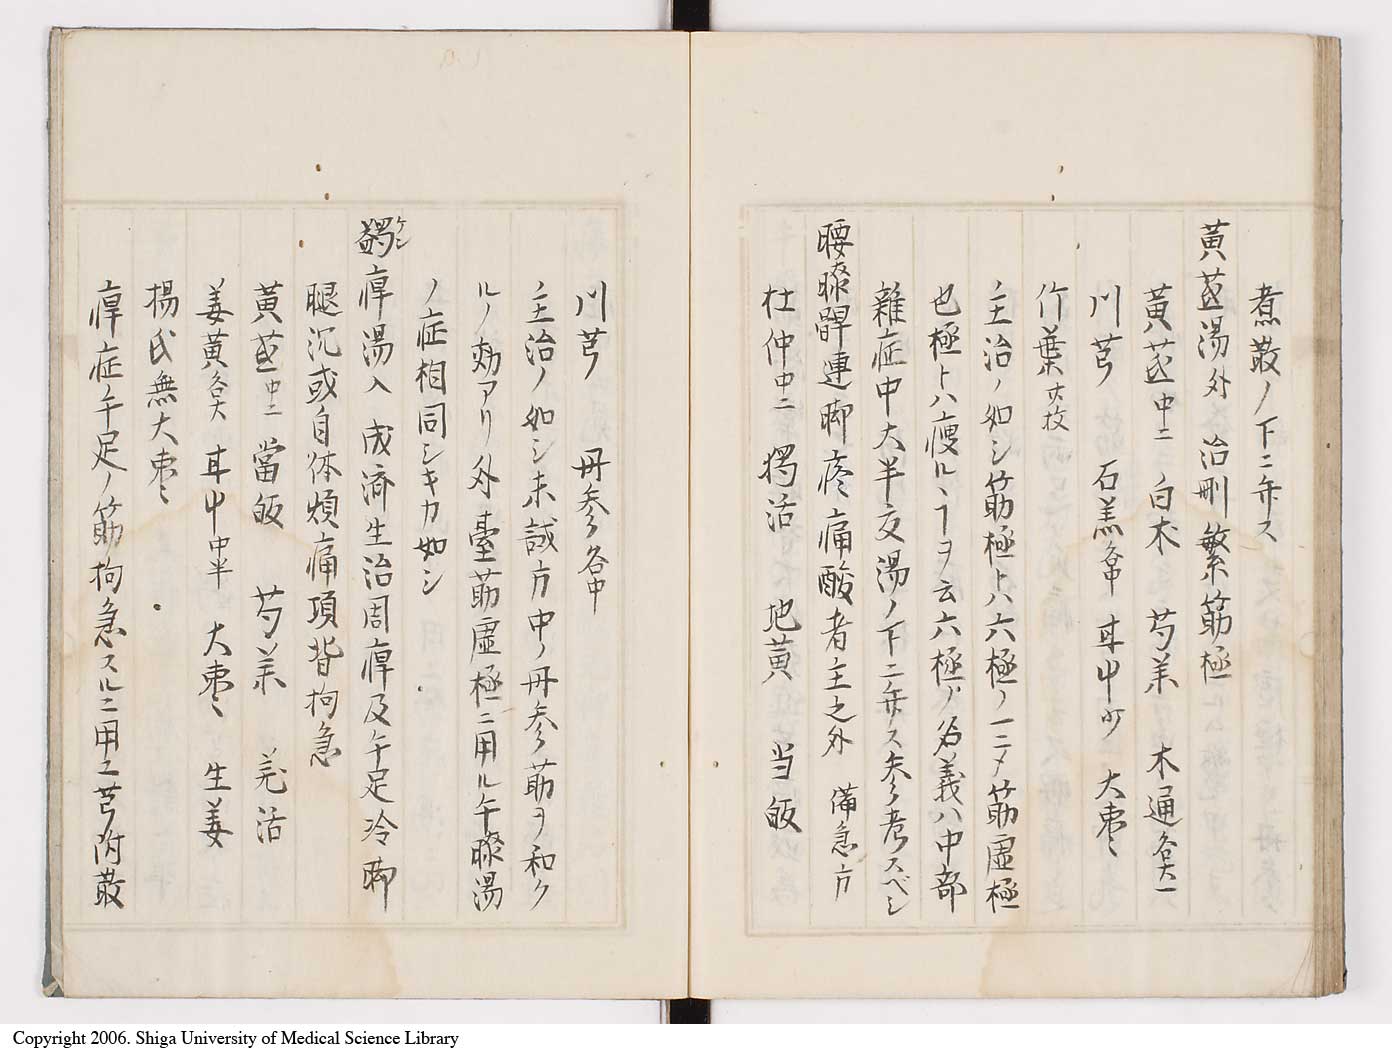 煮散ノ下ニ弁ス
黄芪湯外 治刪繁筋極
黄芪中二 白朮 芍薬 木通各大一
川芎 石羔各中 甘中少 大棗
竹葉十枚
主治ノ如シ筋極上ハ六極ノ一ニメ筋虚極
也極トハ痩ルヿヲ云六極ノ名義ハ中部
雑症中大半夏湯ノ下ニ弁ス参考スベシ
腰 髀連脚疼痛酸者主之外 備急方
杜仲中二 独活 地黄 当皈
川芎 丹参各中
主治ノ如シ未試方中ノ丹参筋ヲ和ク
ルノ効アリ外臺筋虚極ニ用ル牛膝湯
ノ症相同シキカ如シ
蠲ケン痺湯入 成済生治周痺及手足冷脚
腿沉或自体煩痛項背拘急
黄芪中二 當皈 芍薬 羌活
姜黄各大 甘中中半 大棗 生姜
楊氏無大棗
痺症手足ノ筋拘急スルニ用ユ芎附散
Copyright 2006. Shiga University of Medical Science Library